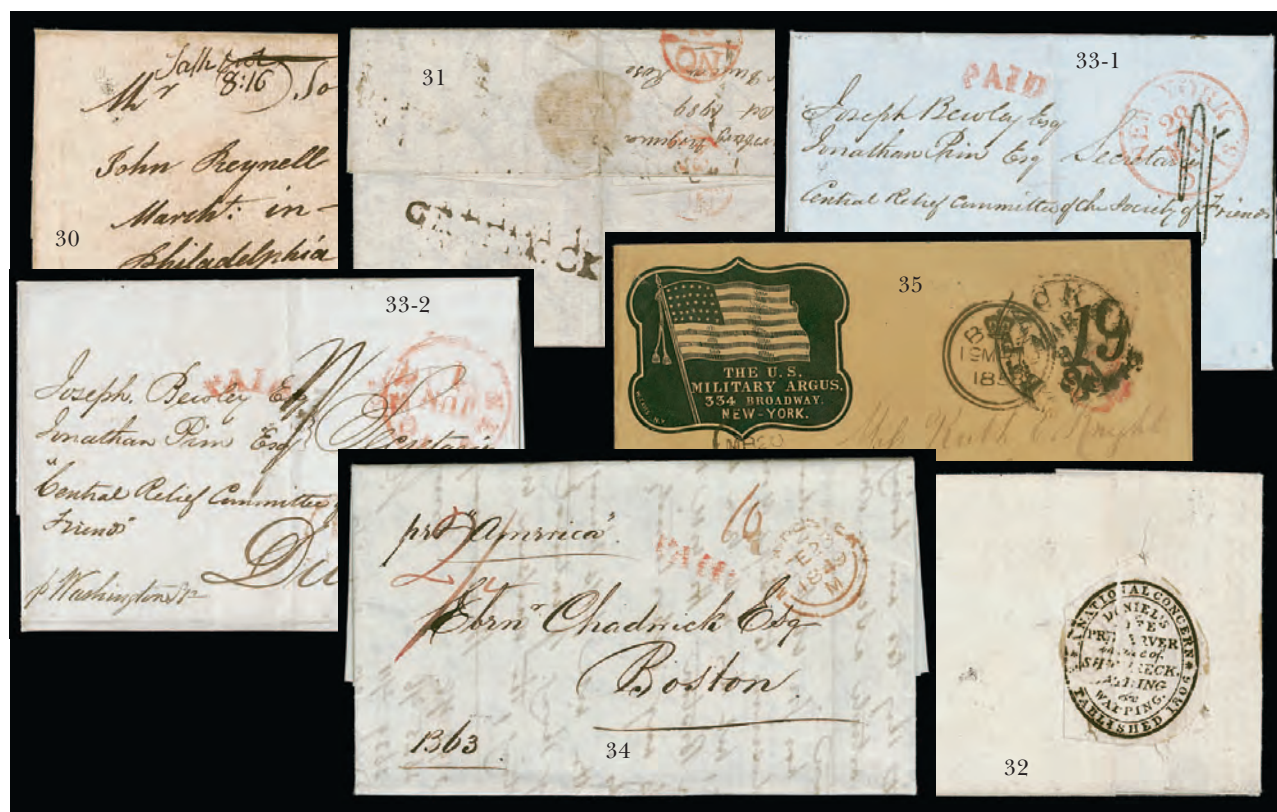 Mr
8:16
So
John Reynell
March: in-
Philadelphia
30
31
ON
Rose
Oct 1789
Virginia
33-1
PAID
NEW-YORK
28
Joseph Bewley Esq
Jonathan Pim Esq Secretaries
Central Relief Committee of the Society of Friends
33-2
PAID
Joseph Bewley Esq
Jonathan Pim Esq
"Central Relief Committee
Friends"
p Washington
35
THE U.S.
MILITARY ARGUS.
334 BROADWAY.
NEW-YORK.
19
MR20
Miss Ruth E. Knight
pr "America"
2/
16
PAID
1849
M
Ebenr Chadwick Esq
Boston
1363
34
NATIONAL CONCERN
DANIEL'S
LIFE
PRESERVER
in case of
SHIPWRECK,
BATHING
or
WARPING.
ESTABLISHED 1805
32